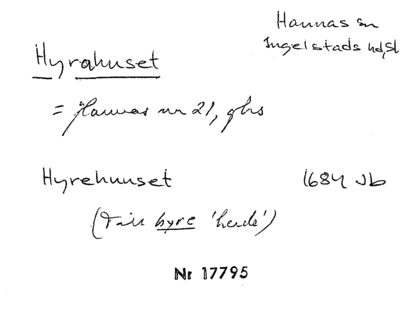 Hannas sn
Ingelstads hd, Sk
Hyrahuset
= Hannas nr 21, gbs
Hyrehuuset 1684 Jb
(Till hyre 'herde')
Nr 17795